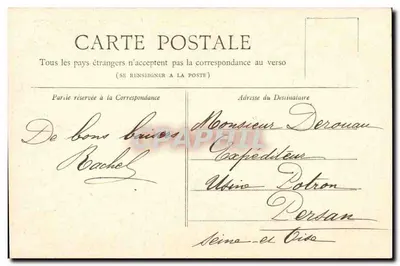 CARTE POSTALE
Tous les pays étrangers n'acceptent pas la correspondance au verso
(SE RENSEIGNER A LA POSTE)
Partie réservée à la Correspondance
Adresse du Destinataire
De bons baisers
Rachel
Monsieur Derouau
Expéditeur
Usine Potron
Persan
Seine-et-Oise